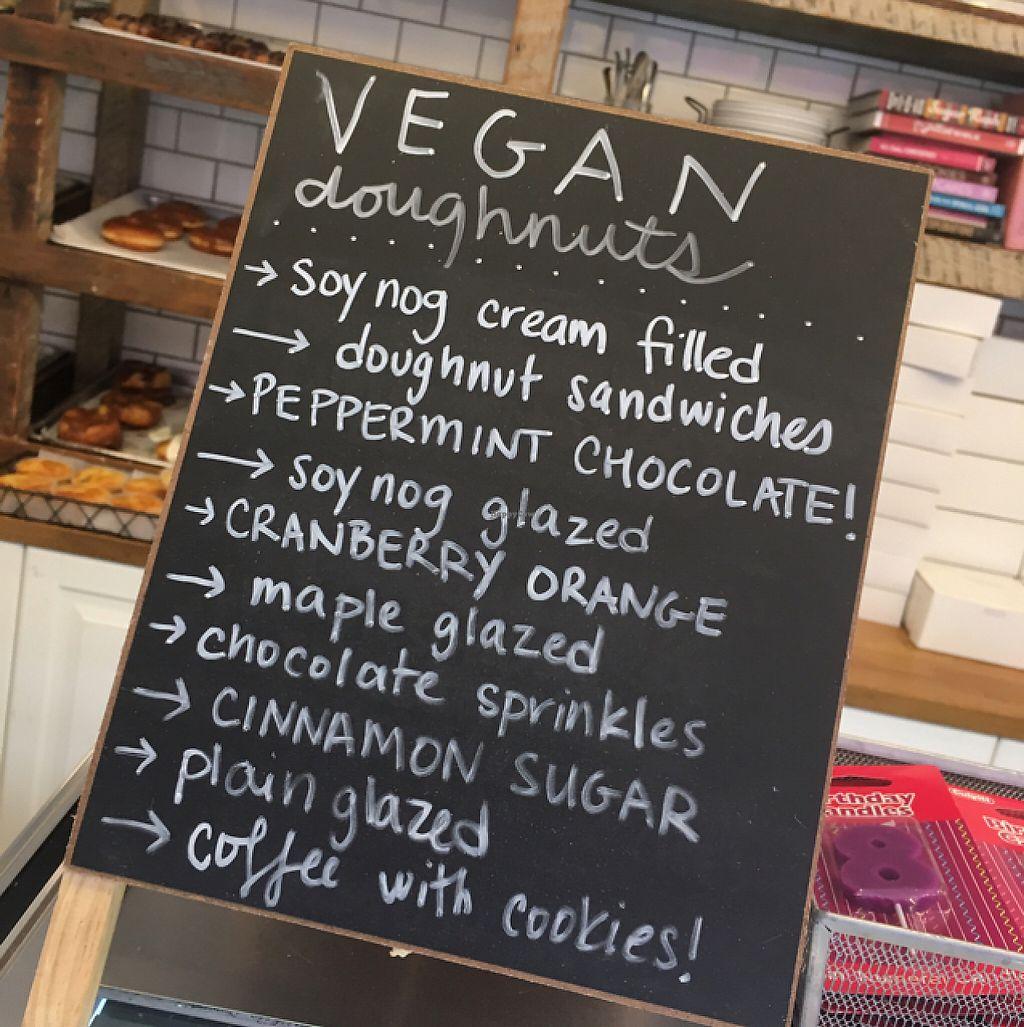 VEGAN
doughnuts
→ soy nog cream filled
→ doughnut sandwiches
→ PEPPERMINT CHOCOLATE!
→ soy nog glazed
→ CRANBERRY ORANGE
→ maple glazed
→ chocolate sprinkles
→ CINNAMON SUGAR
→ plain glazed
→ coffee with cookies!